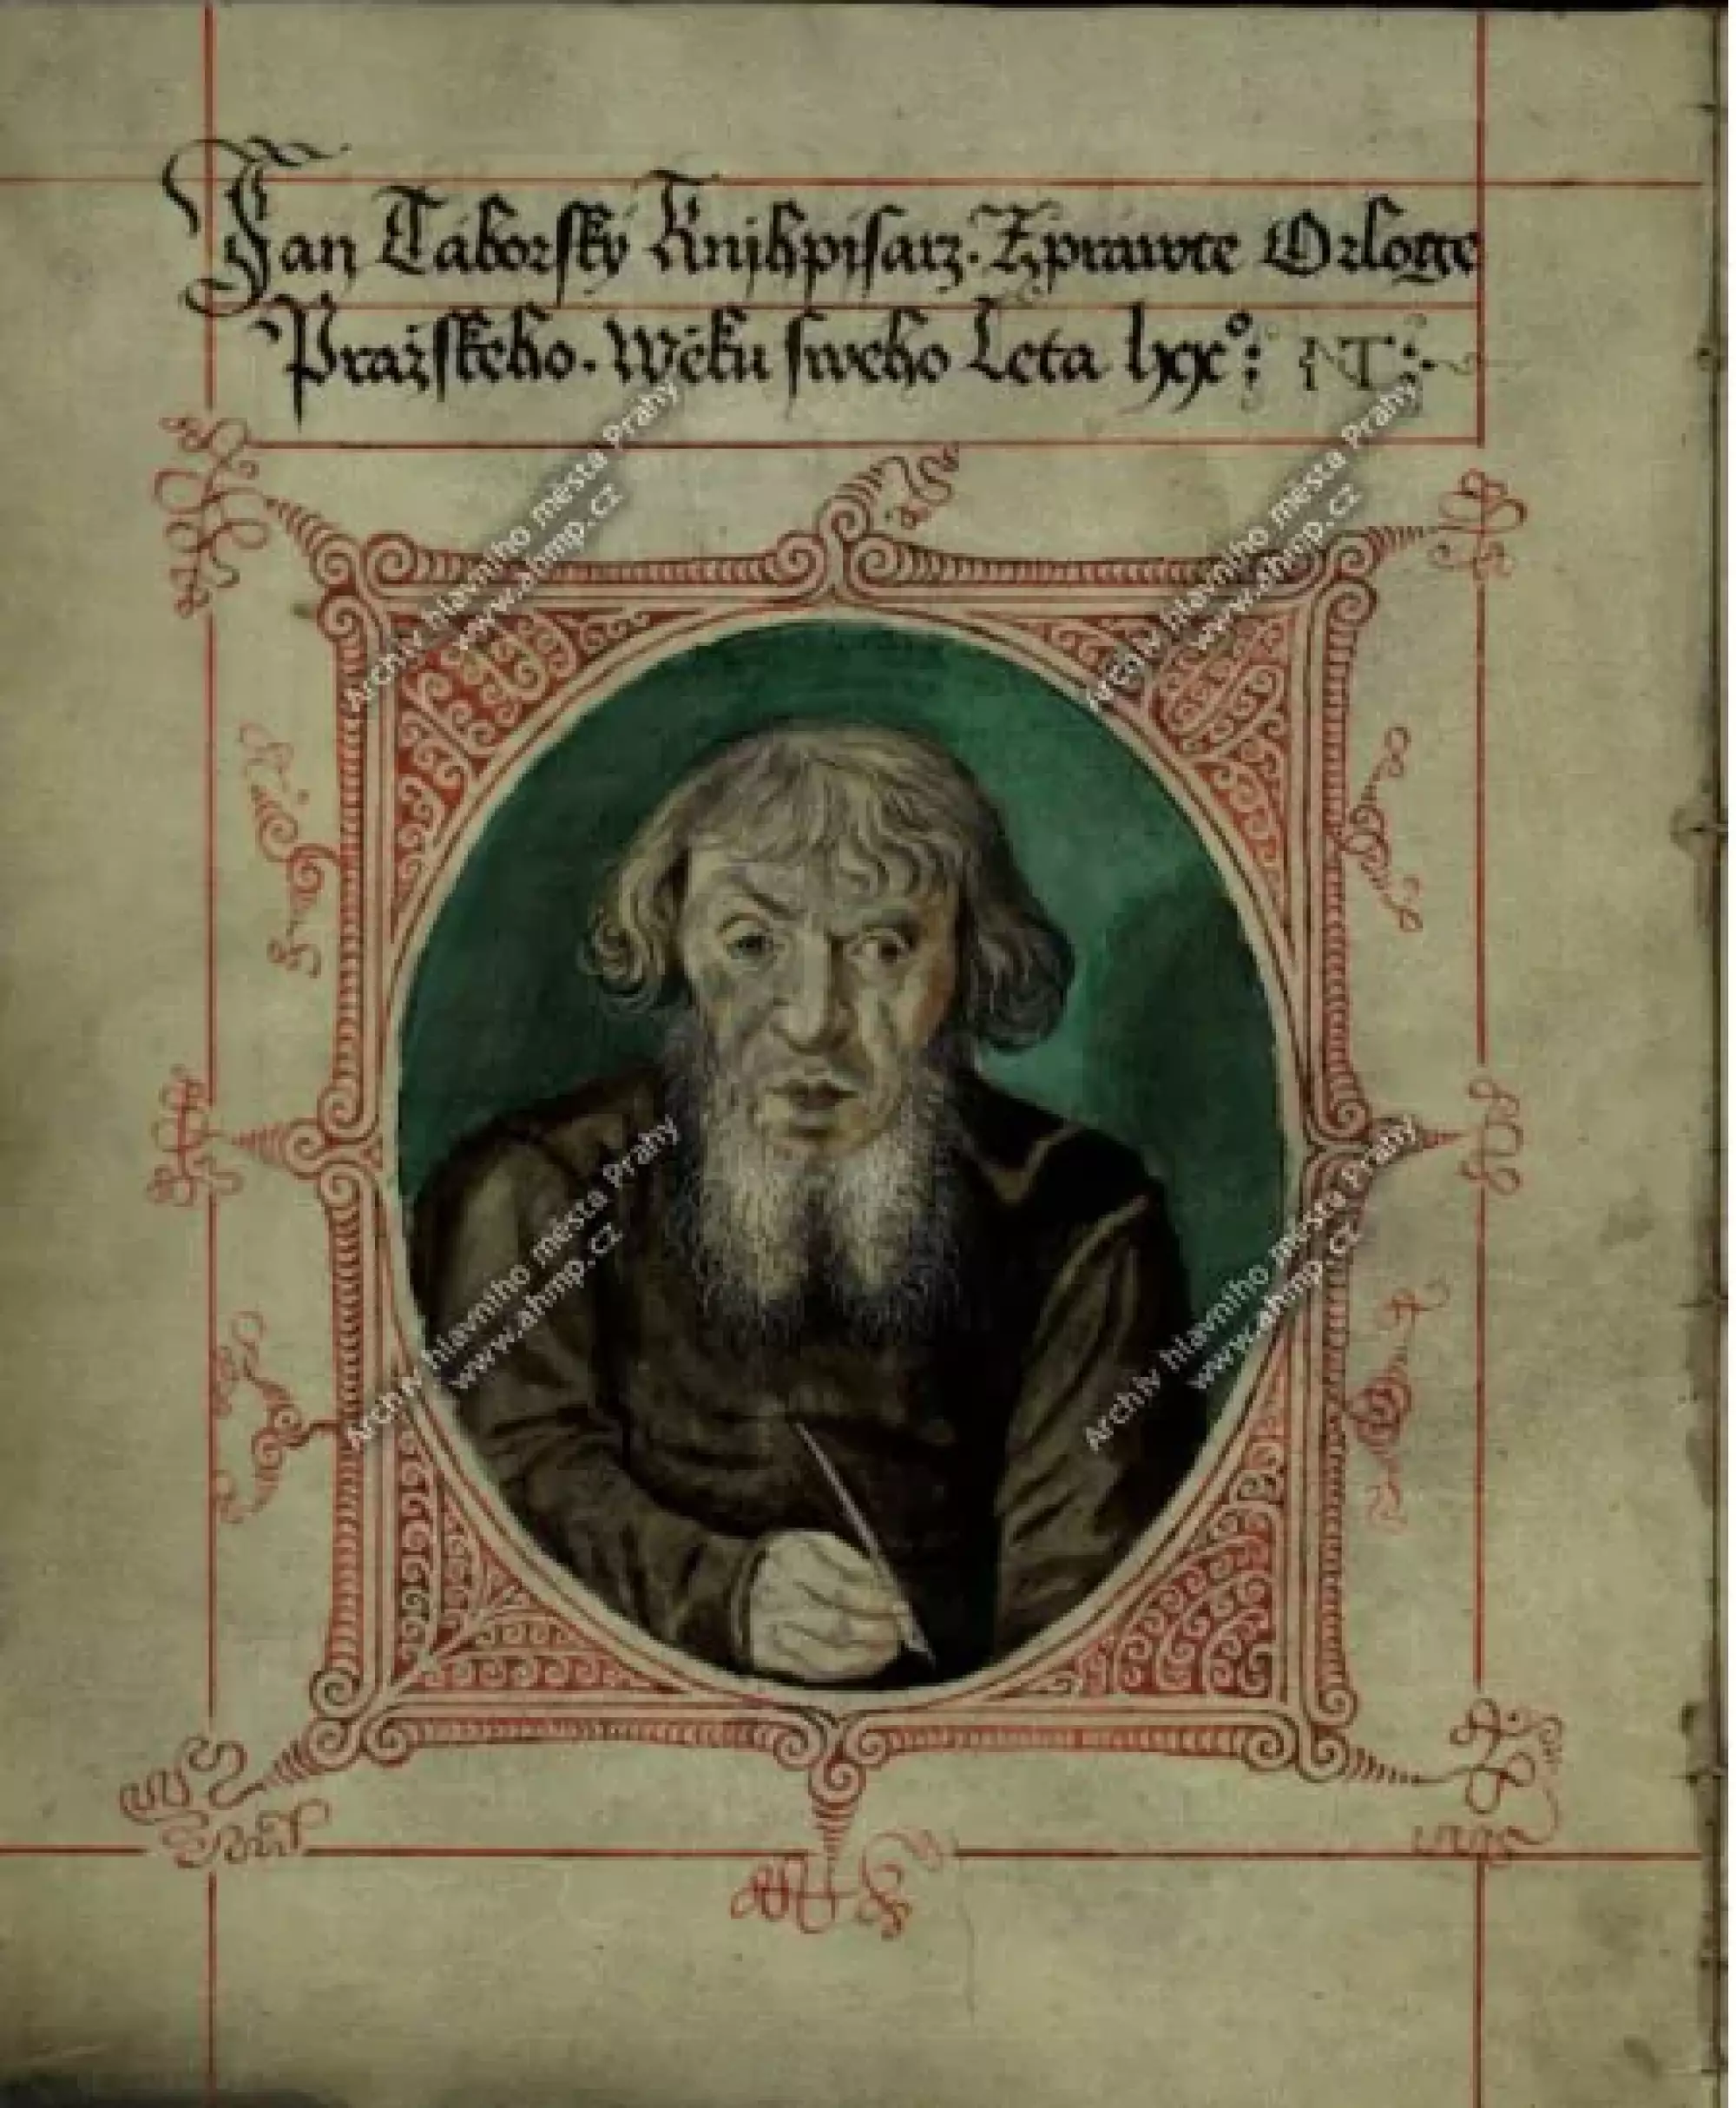 Jan Táborský Knihpisarz. Zprawce Orloge
Pražského. Wěku sweho Leta lxx°:
Archiv hlavního města Prahy
www.ahmp.cz
Archiv hlavního města Prahy
www.ahmp.cz
Archiv hlavního města Prahy
www.ahmp.cz
Archiv hlavního města Prahy
www.ahmp.cz